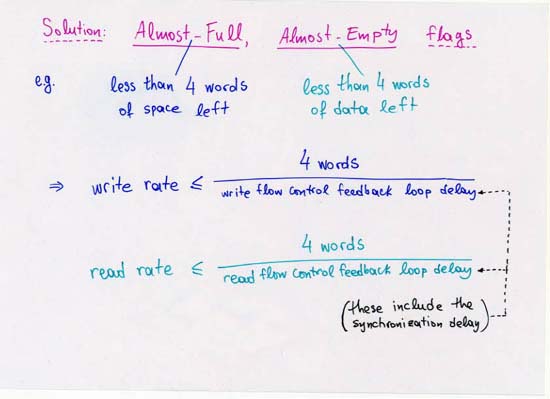 Solution: Almost-Full, Almost-Empty flags
e.g. less than 4 words less than 4 words
of space left of data left
4 words
⇒ write rate ≤ write flow control feedback loop delay
4 words
read rate ≤ read flow control feedback loop delay
(these include the
synchronization delay)